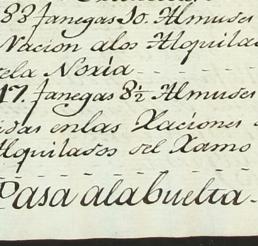 88 fanegas 10. Almudes
Nacion alos Alquilad
ela Noxia
17. fanegas 8½ Almudes
idas enlas Raciones
Alquilados del Ramo
Pasa alabuelta.